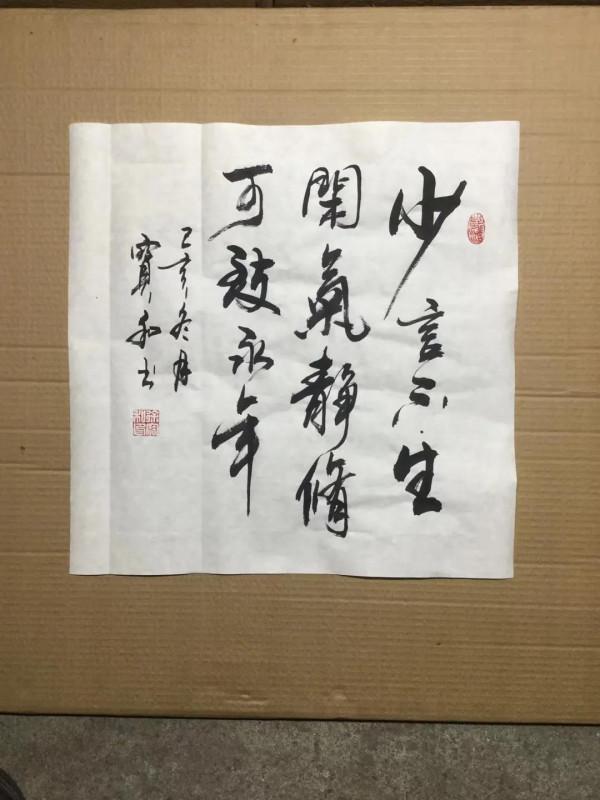 少言不生
閑氣靜脩
可致永年
己亥冬月
寶和书